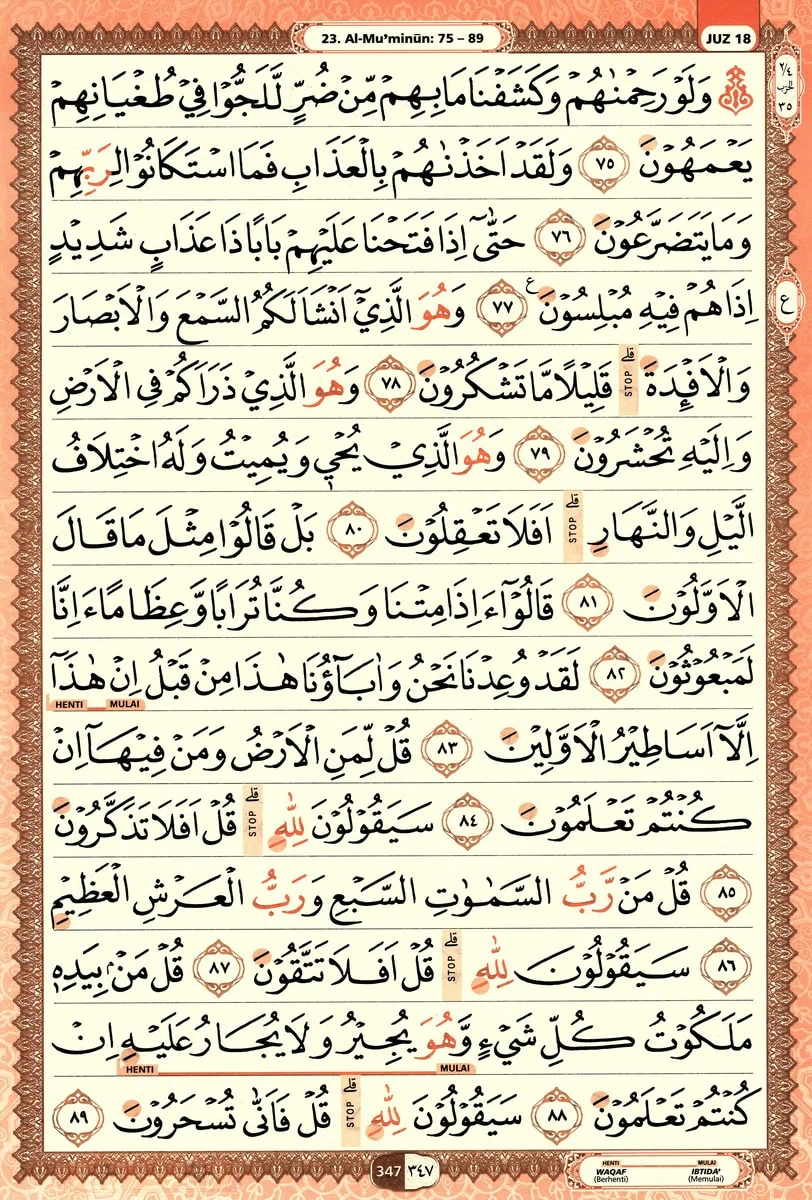 23. Al-Mu’minūn: 75 – 89
JUZ 18
٢/٤
الحزب
٣٥
وَلَوْ رَحِمْنٰهُمْ وَكَشَفْنَا مَا بِهِمْ مِّنْ ضُرٍّ لَّلَجُّوْا فِيْ طُغْيَانِهِمْ
يَعْمَهُوْنَ ٧٥ وَلَقَدْ اَخَذْنٰهُمْ بِالْعَذَابِ فَمَا اسْتَكَانُوْا لِرَبِّهِمْ
وَمَا يَتَضَرَّعُوْنَ ٧٦ حَتّٰىٓ اِذَا فَتَحْنَا عَلَيْهِمْ بَابًا ذَا عَذَابٍ شَدِيْدٍ
اِذَا هُمْ فِيْهِ مُبْلِسُوْنَ ࣖ ٧٧ وَهُوَ الَّذِيْٓ اَنْشَاَ لَكُمُ السَّمْعَ وَالْاَبْصَارَ
ع
وَالْاَفْـِٕدَةَۗ STOP قَلِيْلًا مَّا تَشْكُرُوْنَ ٧٨ وَهُوَ الَّذِيْ ذَرَاَكُمْ فِى الْاَرْضِ
وَاِلَيْهِ تُحْشَرُوْنَ ٧٩ وَهُوَ الَّذِيْ يُحْيٖ وَيُمِيْتُ وَلَهُ اخْتِلَافُ
الَّيْلِ وَالنَّهَارِۗ STOP اَفَلَا تَعْقِلُوْنَ ٨٠ بَلْ قَالُوْا مِثْلَ مَا قَالَ
الْاَوَّلُوْنَ ٨١ قَالُوْٓا ءَاِذَا مِتْنَا وَكُنَّا تُرَابًا وَّعِظَامًا ءَاِنَّا
لَمَبْعُوْثُوْنَ ٨٢ لَقَدْ وُعِدْنَا نَحْنُ وَاٰبَاۤؤُنَا هٰذَا مِنْ قَبْلُ اِنْ هٰذَآ
HENTI MULAI
اِلَّآ اَسَاطِيْرُ الْاَوَّلِيْنَ ٨٣ قُلْ لِّمَنِ الْاَرْضُ وَمَنْ فِيْهَآ اِنْ
كُنْتُمْ تَعْلَمُوْنَ ٨٤ سَيَقُوْلُوْنَ لِلّٰهِۗ STOP قُلْ اَفَلَا تَذَكَّرُوْنَ
٨٥ قُلْ مَنْ رَّبُّ السَّمٰوٰتِ السَّبْعِ وَرَبُّ الْعَرْشِ الْعَظِيْمِ
٨٦ سَيَقُوْلُوْنَ لِلّٰهِۗ STOP قُلْ اَفَلَا تَتَّقُوْنَ ٨٧ قُلْ مَنْۢ بِيَدِهٖ
مَلَكُوْتُ كُلِّ شَيْءٍ وَّهُوَ يُجِيْرُ وَلَا يُجَارُ عَلَيْهِ اِنْ
HENTI MULAI
كُنْتُمْ تَعْلَمُوْنَ ٨٨ سَيَقُوْلُوْنَ لِلّٰهِۗ STOP قُلْ فَاَنّٰى تُسْحَرُوْنَ ٨٩
347 ٣٤٧
HENTI MULAI
WAQAF IBTIDA'
(Berhenti) (Memulai)